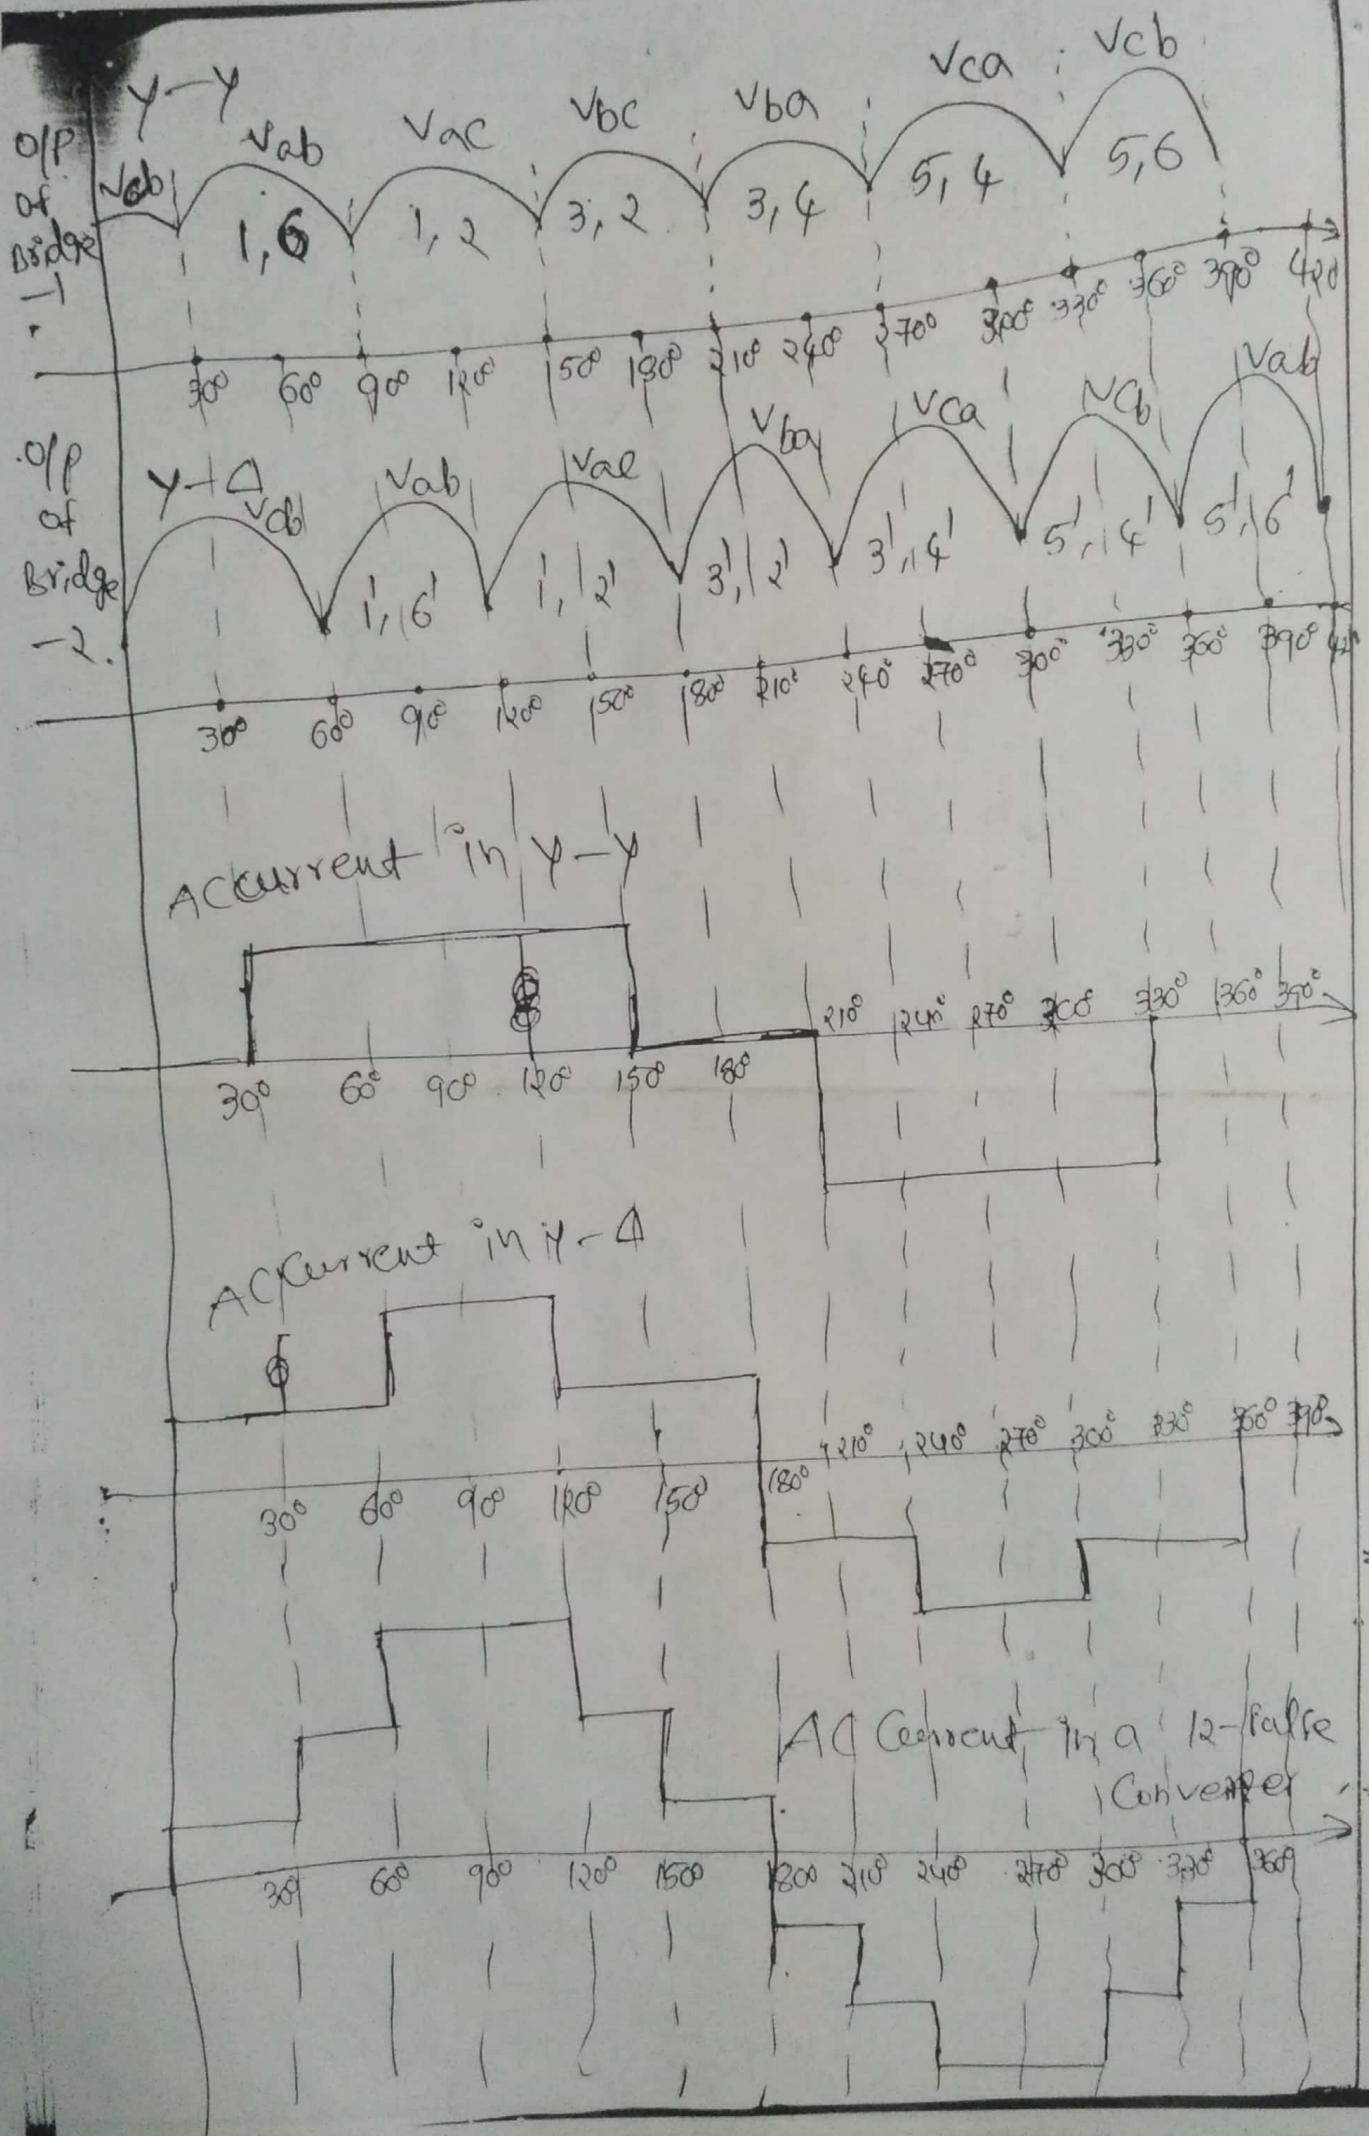 Y-Y
O/P of Bridge -1
Vcb Vab Vac Vbc Vba Vca Vcb
1,6 1,2 3,2 3,4 5,4 5,6
30° 60° 90° 120° 150° 180° 210° 240° 270° 300° 330° 360° 390° 420
O/P of Bridge -2.
Y-Δ
Vcb Vab Vac Vba Vca Vcb Vab
1',6' 1',2' 3',2' 3',4' 5',4' 5',6'
30° 60° 90° 120° 150° 180° 210° 240° 270° 300° 330° 360° 390° 420
AC current in Y-Y
30° 60° 90° 120° 150° 180° 210° 240° 270° 300° 330° 360° 390°
AC Current in Y-Δ
30° 60° 90° 120° 150° 180° 210° 240° 270° 300° 330° 360° 390°
AC Current in a 12-Pulse
Converter
30° 60° 90° 120° 150° 180° 210° 240° 270° 300° 330° 360°